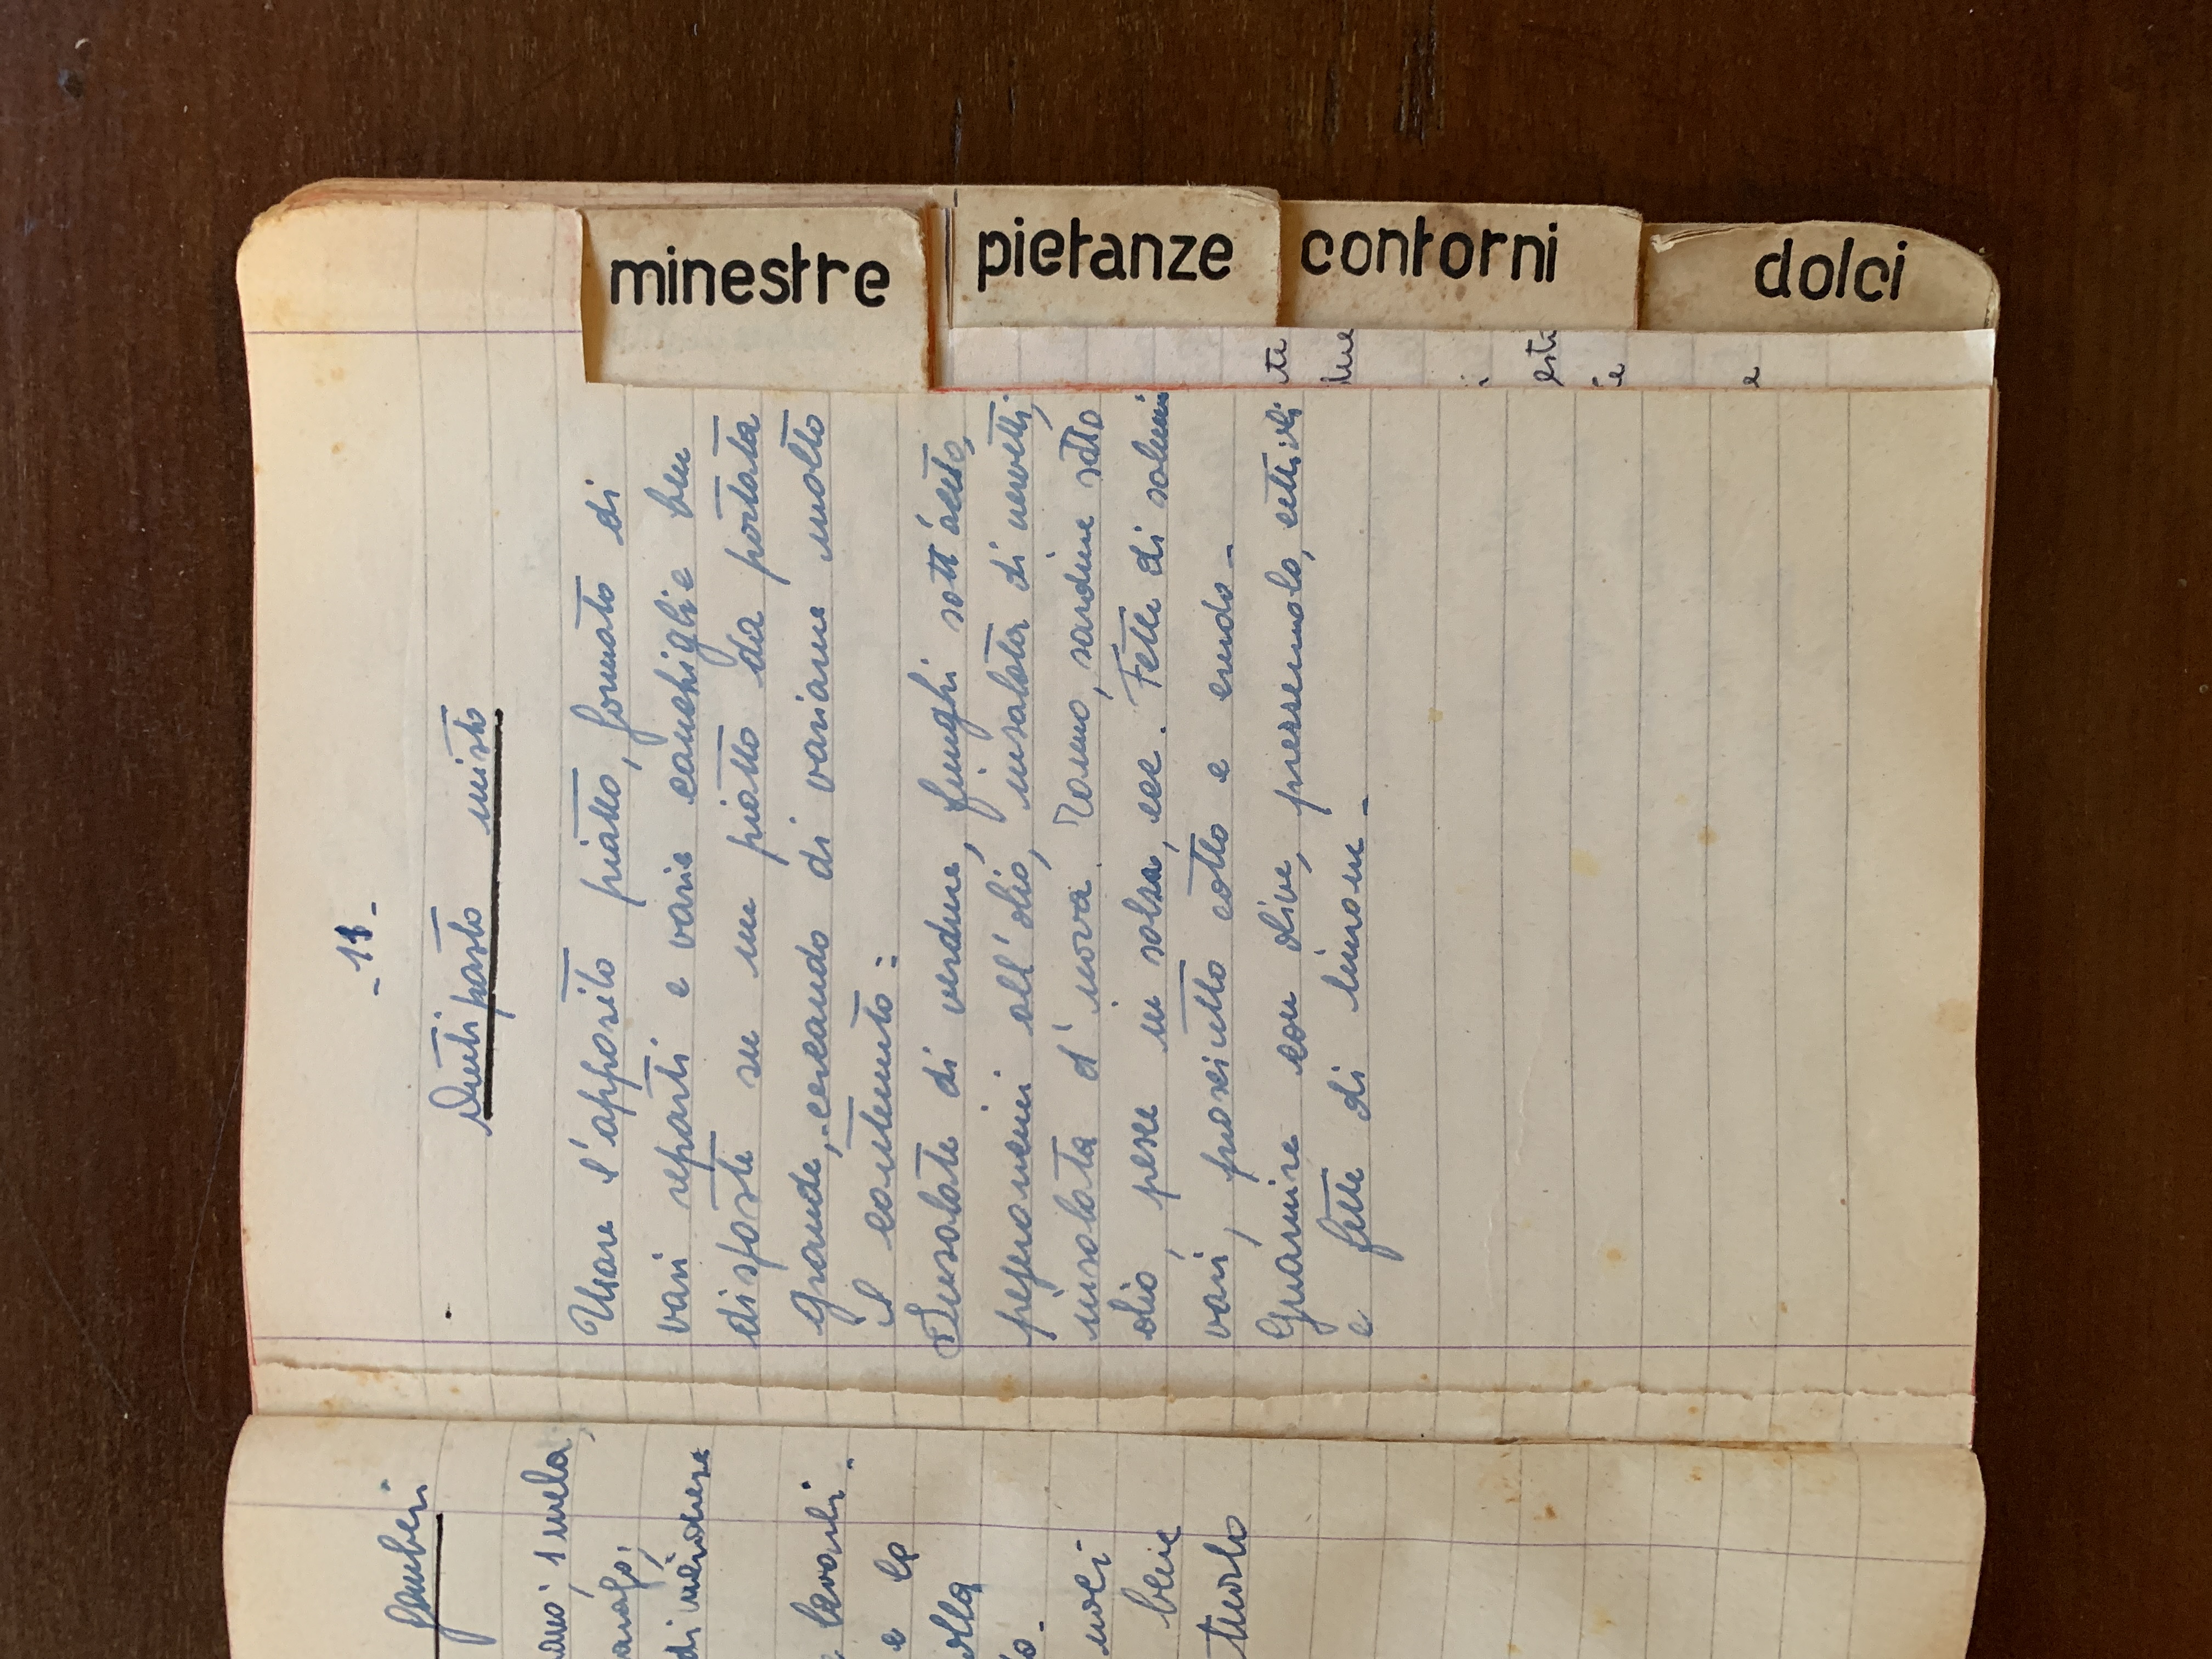 gamberi
1 mela
di maionese
e levarli -
e le
noci
bene
- 11 -
Antipasto misto
Usare l'apposito piatto, formato di
vari reparti e varie conchiglie ben
disposte su un piatto da portata
grande, cercando di variarne molto
il contenuto:
Insalate di verdure, funghi sott'aceto,
peperoncini all'olio, insalata di nervetti,
insalata d'uova. Tonno, sardine sotto
olio, pesce in salsa, ecc. Fette di salumi
vari, prosciutto cotto e crudo -
Guarnire con olive, prezzemolo, cetrioli
e fette di limone -
minestre
pietanze
contorni
dolci